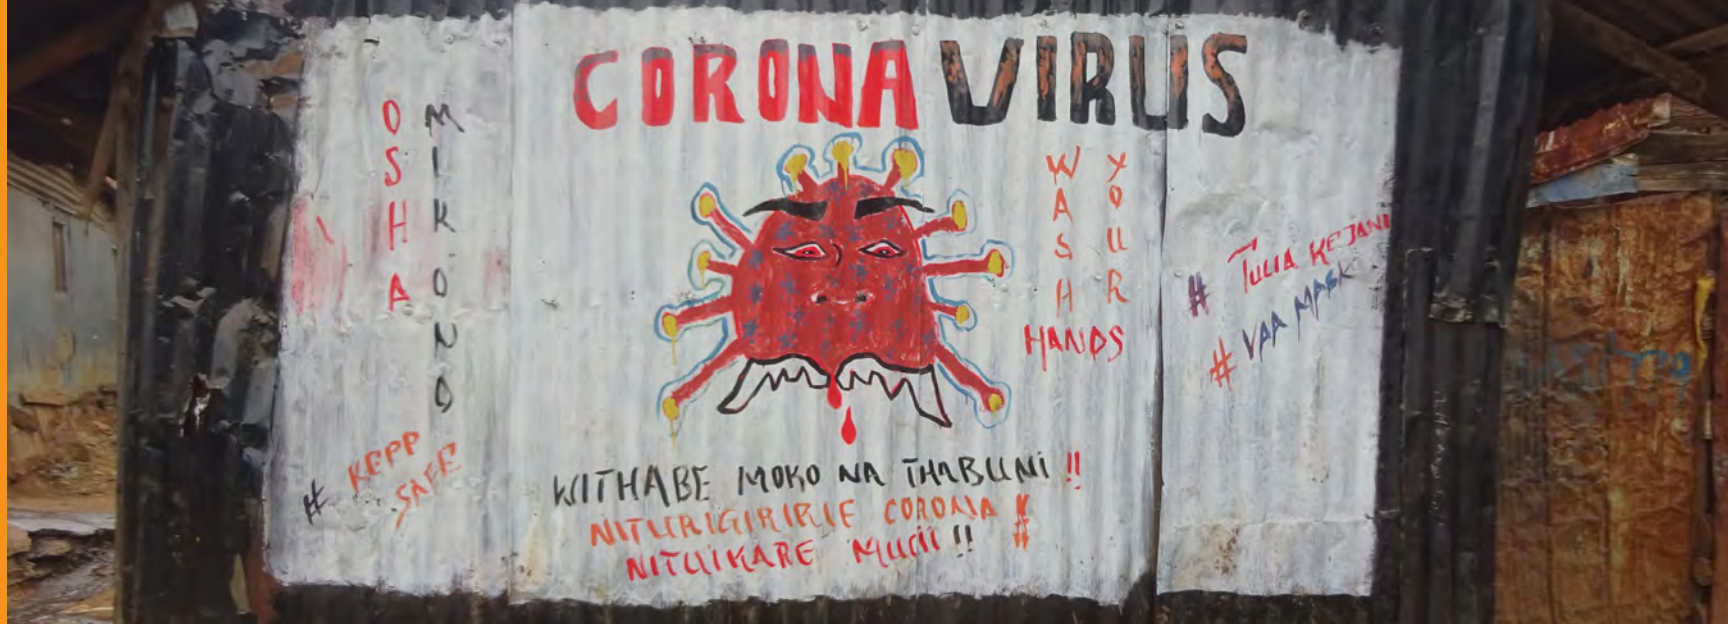 CORONA VIRUS
OSHA
MIKONO
WASH
YOUR
HANDS
# TULIA KEJANI
# VAA MASK
# KEPP
SAFE
WITHABE MOKO NA THABUNI !!
NITURIGIRIRIE CORONA !!
NITUIKARE MUCII !!